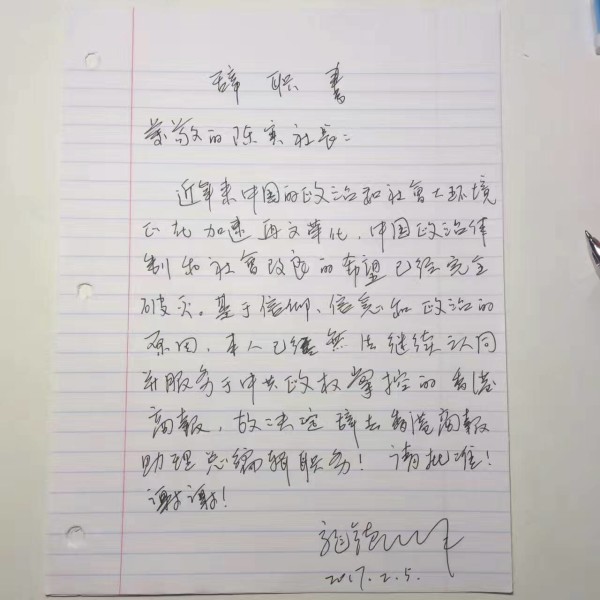 辞职書
尊敬的陈寅社长：
近年来中国的政治和社會大环境
正在加速再文革化，中国政治体
制和社會改良的希望已经完全
破灭。基于信仰、信念和政治的
原因，本人已經無法继续认同
并服务于中共政权掌控的香港
商報，故决定辞去香港商報
助理总编辑职务！请批准！
谢谢！
2017.2.5.